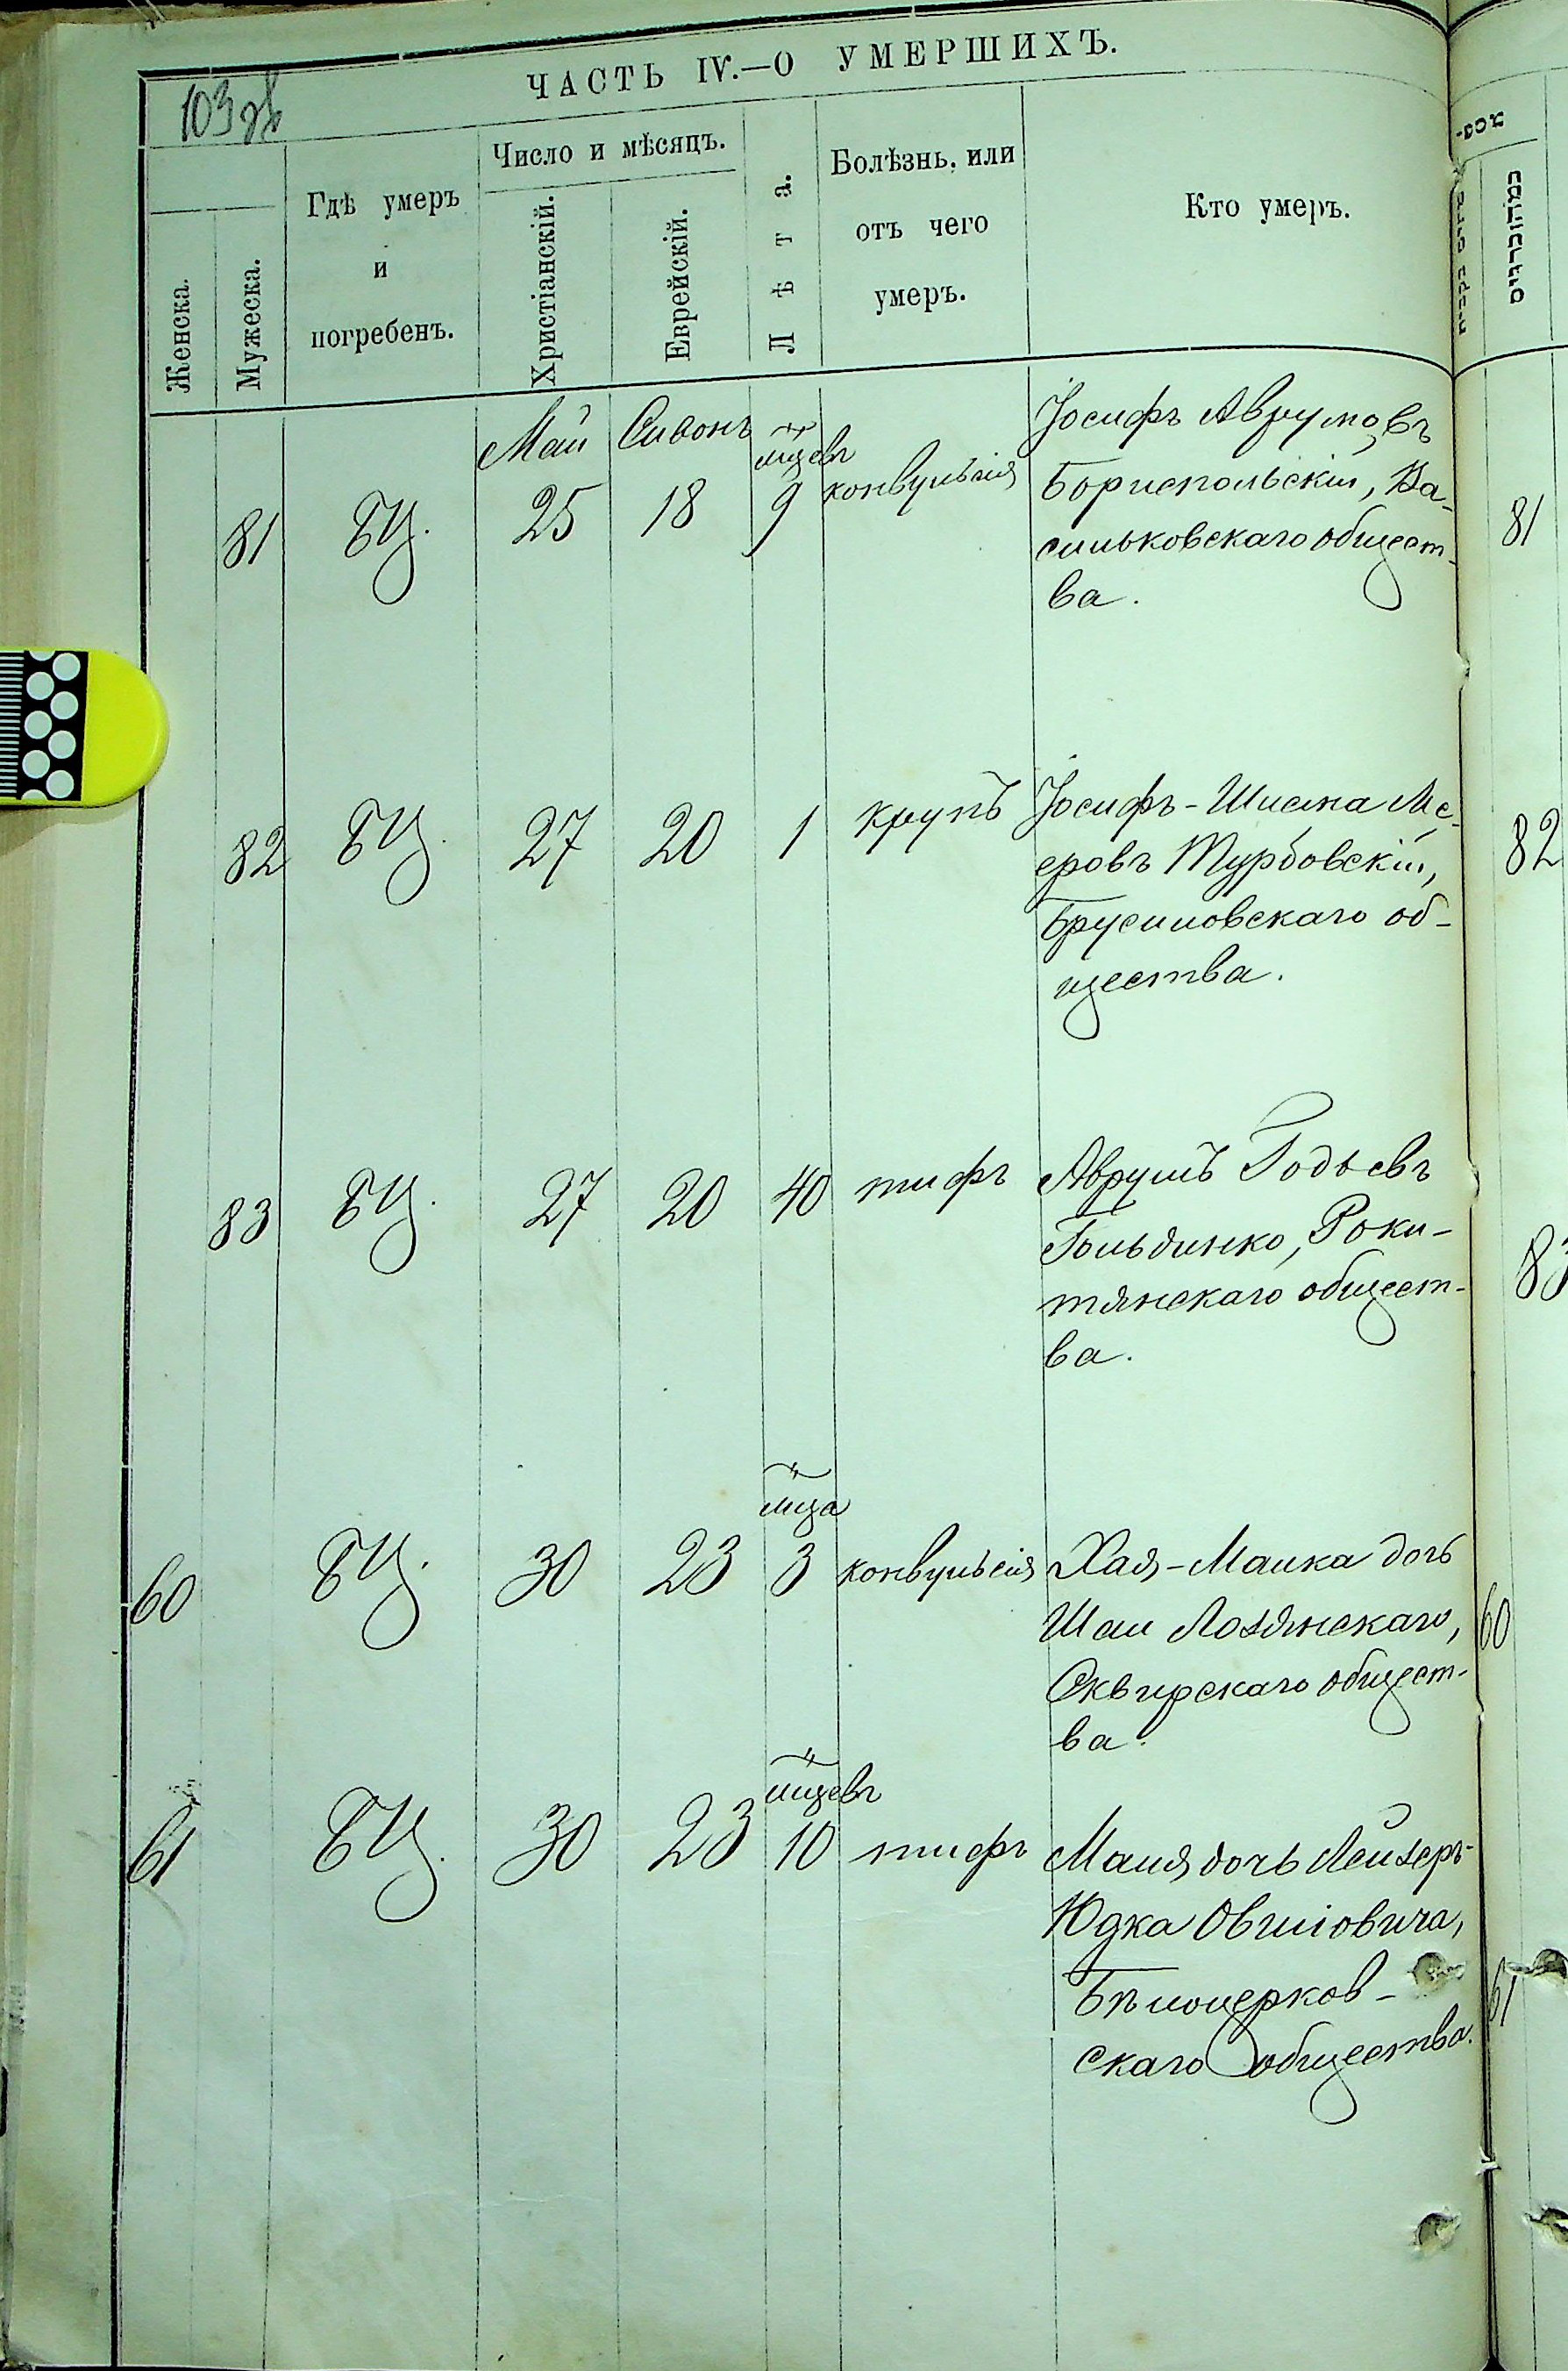 ЧАСТЬ IV.—О УМЕРШИХЪ.
103
Женска.
Мужеска.
Гдѣ умеръ
и
погребенъ.
Число и мѣсяцъ.
Христіанскій.
Еврейскій.
Лѣта.
Болѣзнь, или
отъ чего
умеръ.
Кто умеръ.
Май Сивонъ
81 БЦ. 25 18 мцевъ 9 конвульсія
Іосифъ Аврумовъ
Бориспольскій, Ва-
сильковскаго общест-
ва.
81
82 БЦ. 27 20 1 крупъ
Іосифъ-Шиека Ме-
еровъ Турбовскій,
Брусиловскаго об-
щества.
82
83 БЦ. 27 20 40 тифъ
Аврумъ Годьевъ
Гольдинко, Роки-
тянскаго общест-
ва.
83
60 БЦ. 30 23 мца 3 конвульсія
Хая-Малка дочь
Шаи Лозянскаго,
Сквирскаго общест-
ва.
60
61 БЦ. 30 23 мцевъ 10 тифъ
Маня дочь Лейзеръ-
Юдка Овшіовича,
Бѣлоцерков-
скаго общества.
61
במה וברגיים